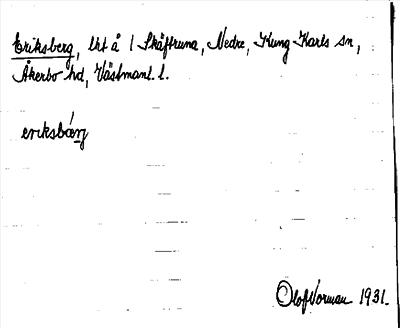 Eriksberg, lht å 1 Skäffruna, Nedre, Kung Karls sn,
Åkerbo hd, Västmanl. l.
eriksbærj
Olof Norman 1931.